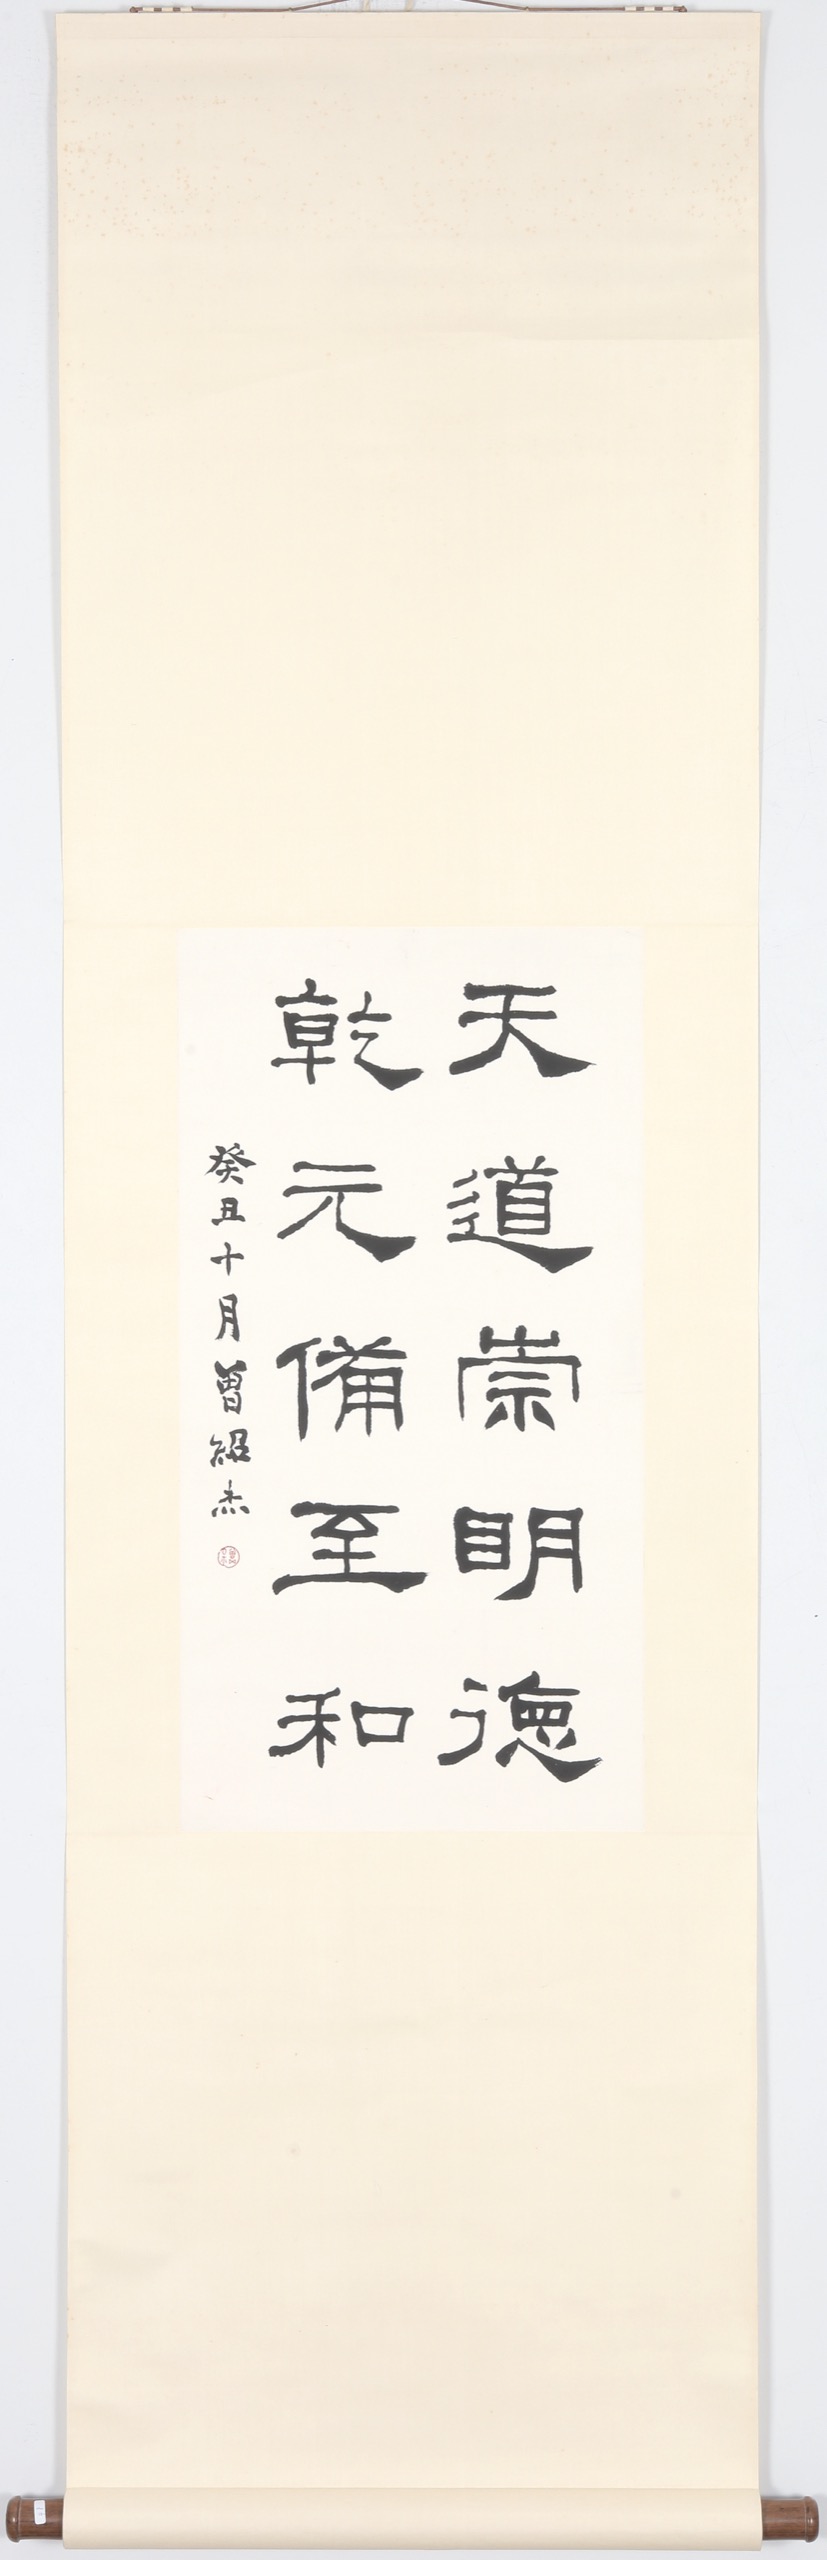 天道崇明德
乾元備至和
癸丑十月曾紹杰